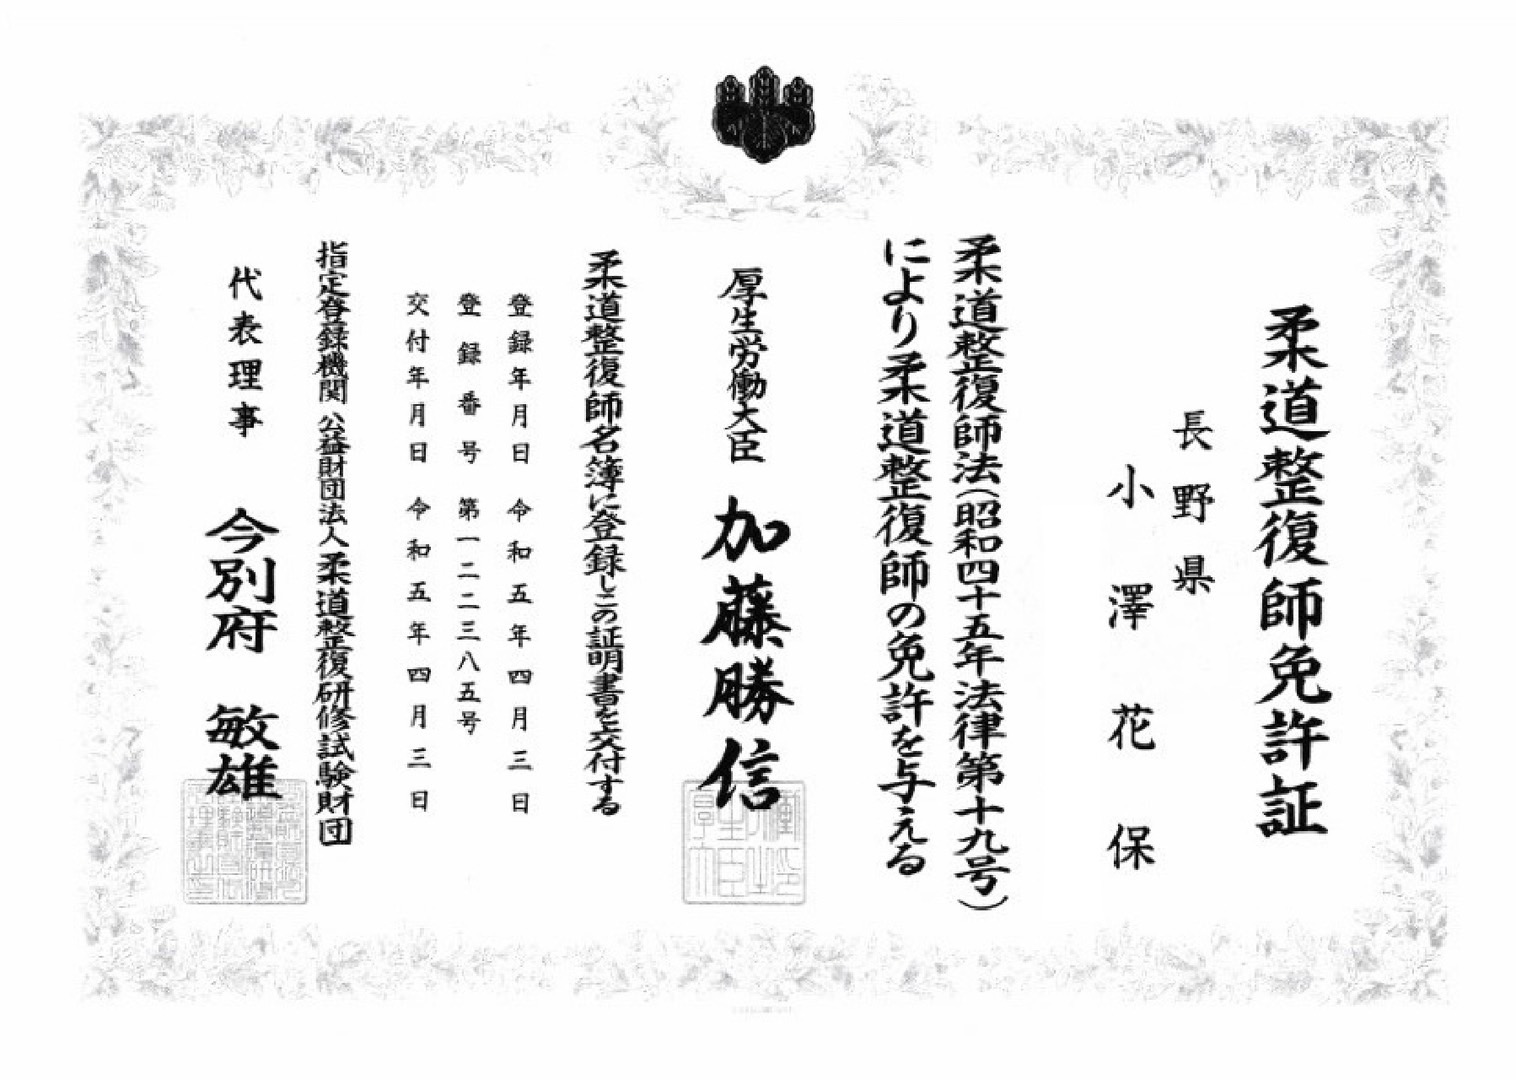 柔道整復師免許証
長野県
小澤花保
柔道整復師法(昭和四十五年法律第十九号)
により柔道整復師の免許を与える
厚生労働大臣 加藤勝信
柔道整復師名簿に登録しこの証明書を交付する
登録年月日 令和五年四月三日
登録番号 第一二二三八五号
交付年月日 令和五年四月三日
指定登録機関 公益財団法人 柔道整復研修試験財団
代表理事 今別府 敏雄